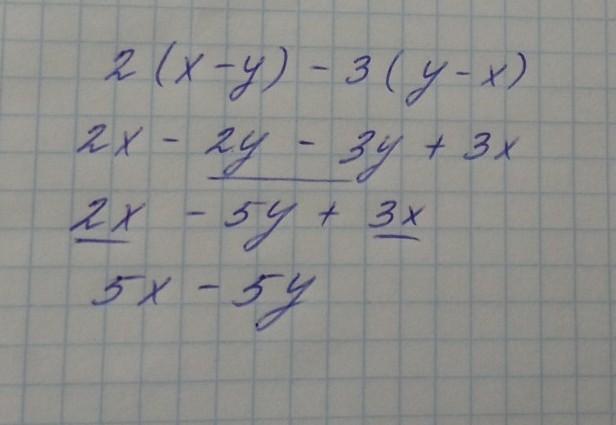 2 (x - y) - 3 (y - x)
2x - 2y - 3y + 3x
2x - 5y + 3x
5x - 5y